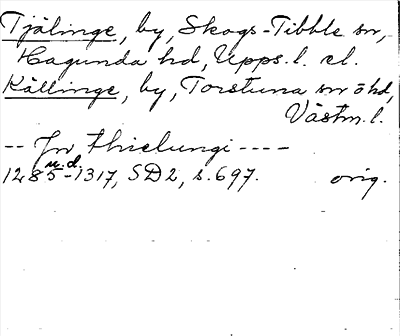 Tjälinge, by, Skogs-Tibble sn,
Hagunda hd, Upps. l. el.
Källinge, by, Torstuna sn o hd,
Västm. l.
-- Jn thielungi ----
u.d.
1285-1317, SD2, s. 697. orig.